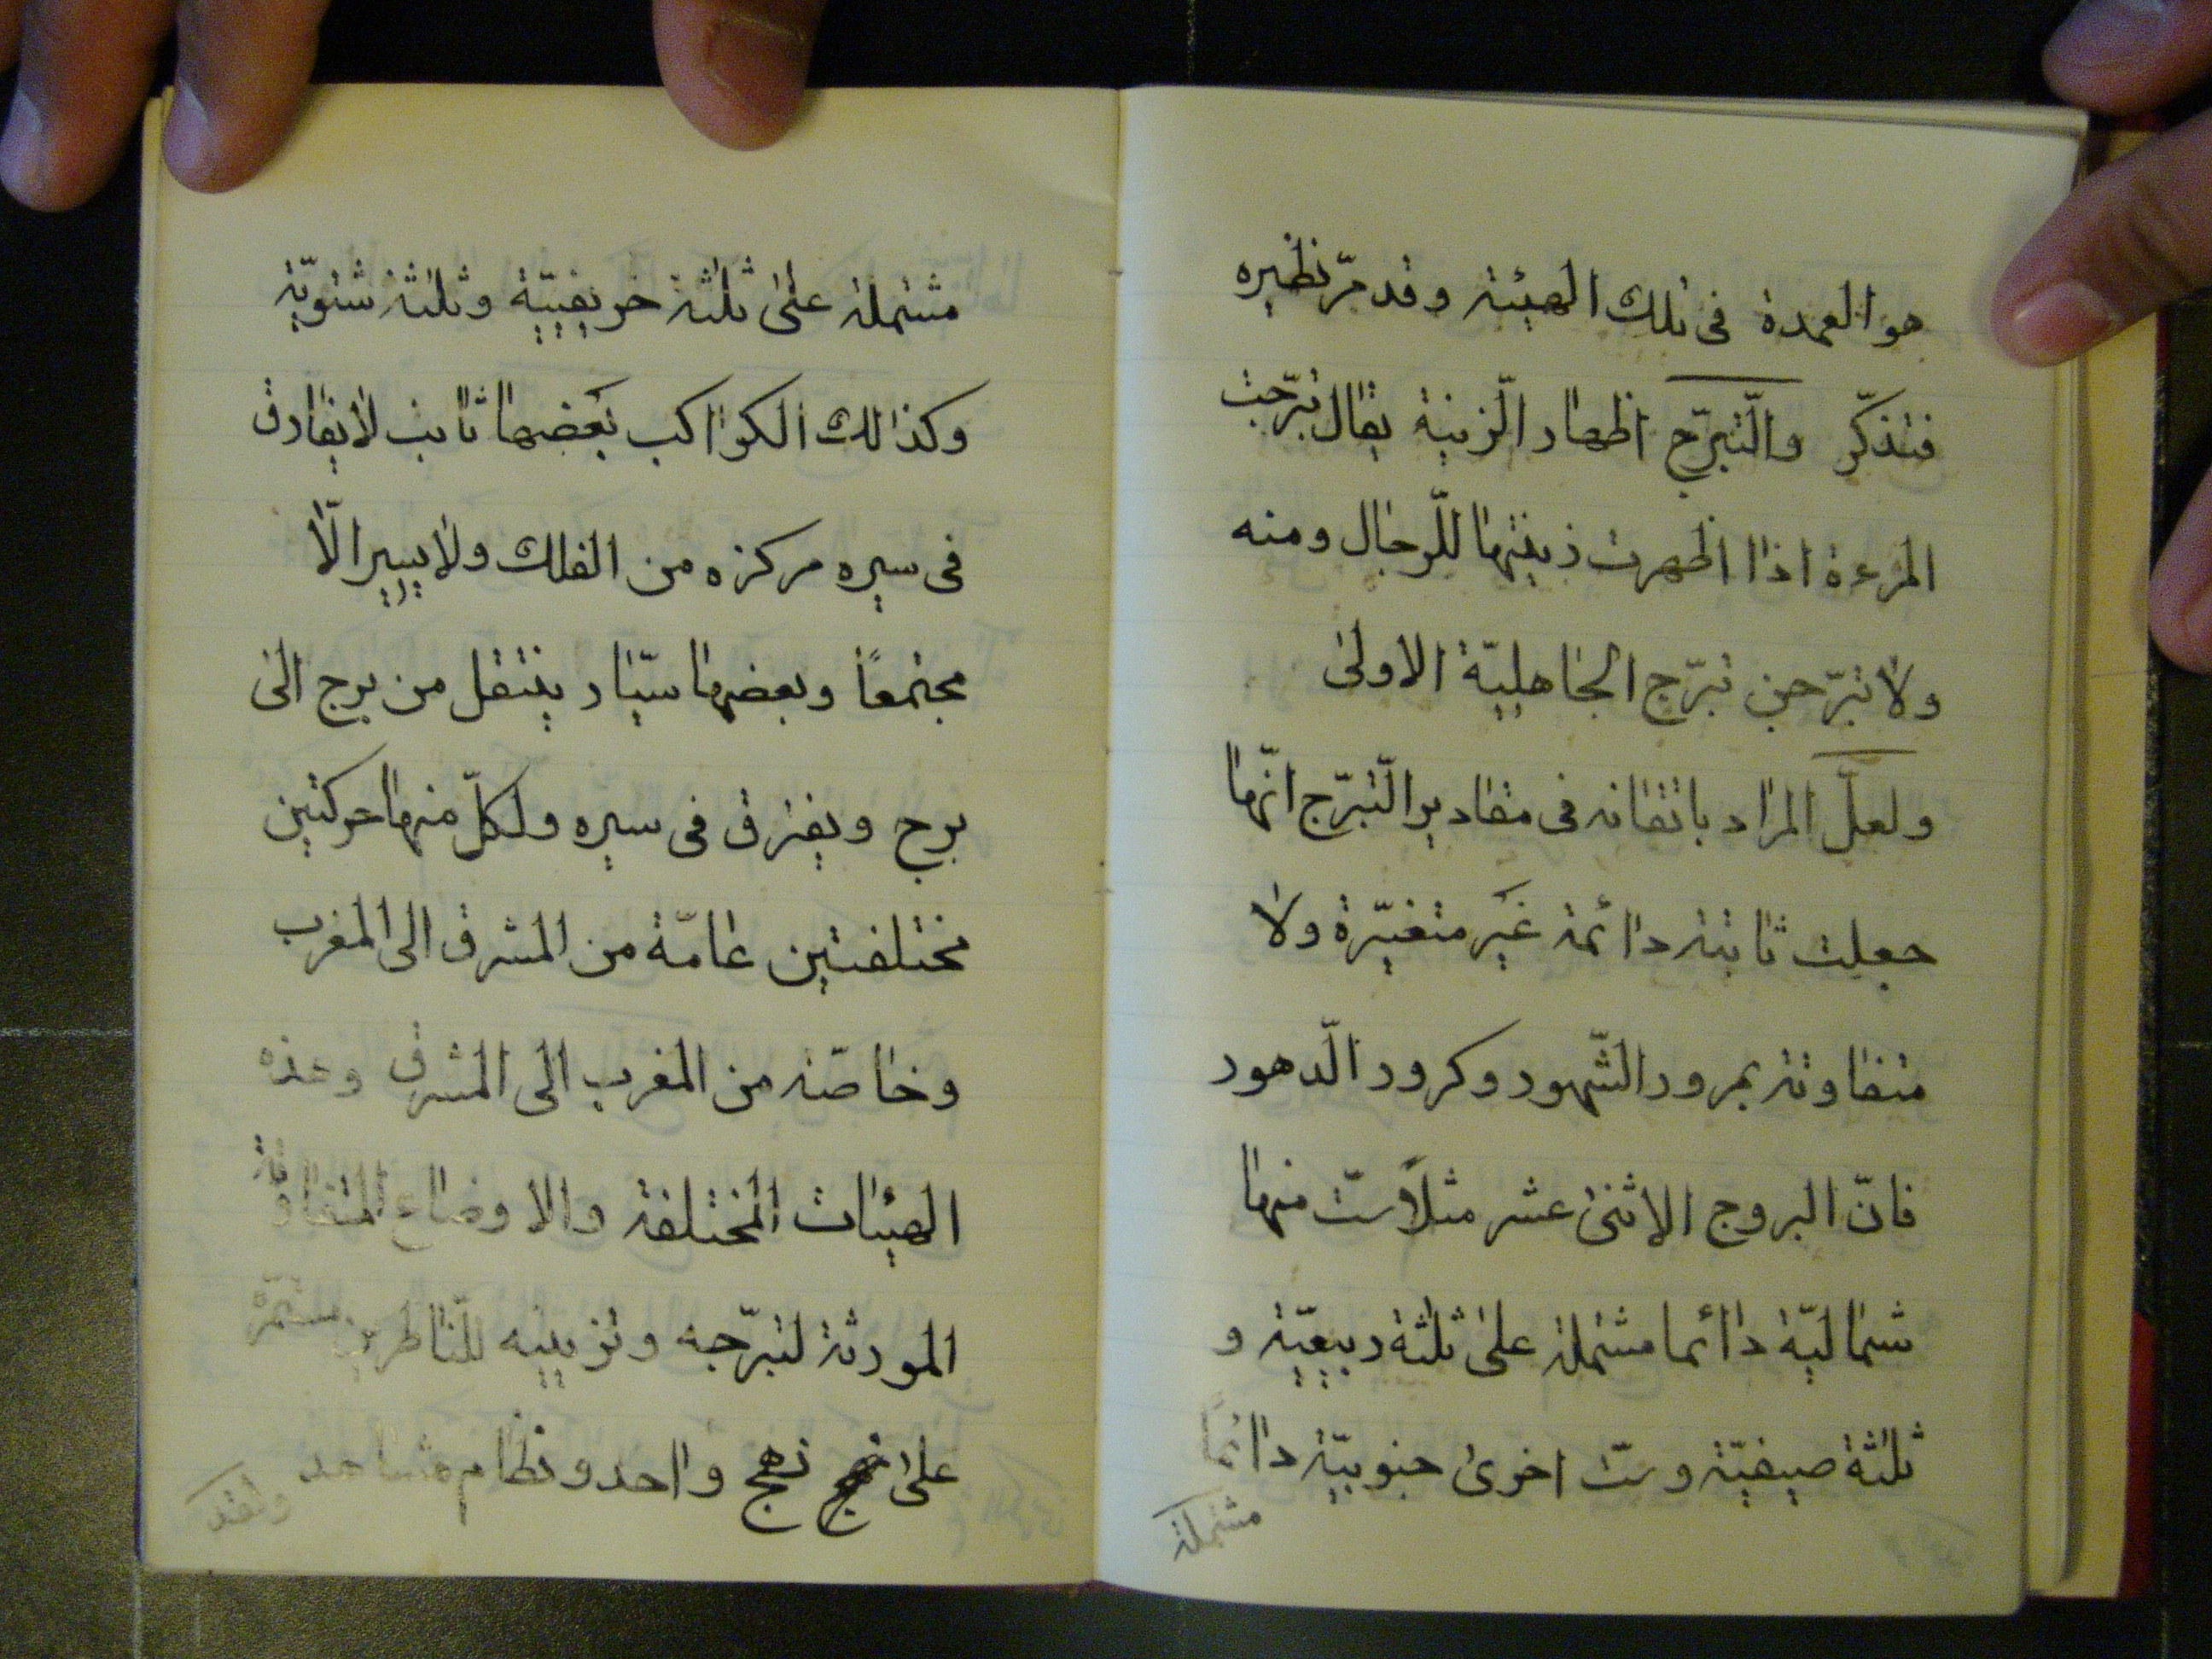 هو العمدة فى تلك الهيئة وقد مرّ نظيره
فتذكّر والتّبرّج اظهار الزّينة يقال تبرّجت
المرءة اذا اظهرت زينتها للرّجال ومنه
ولا تبرّجن تبرّج الجاهليّة الاولى
ولعلّ المراد باتقانه فى مقادير التّبرّج انّها
جعلت ثابتة دائمة غير متغيّرة ولا
متفاوتة بمرور الشّهور وكرور الدّهور
فانّ البروج الاثنى عشر مثلاً ستّ منها
شماليّة دائما مشتملة على ثلثة ربيعيّة و
ثلثة صيفيّة وستّ اخرى جنوبيّة دائماً
مشتملة
مشتملة على ثلثة خريفيّة وثلثة شتويّة
وكذالك الكواكب بعضها ثابت لا يفارق
فى سيره مركزه من الفلك ولا يسير الّا
مجتمعاً وبعضها سيّار ينتقل من برج الى
برج ويفترق فى سيره ولكلّ منها حركتين
مختلفتين عامّة من المشرق الى المغرب
وخاصّة من المغرب الى المشرق وهذه
الهيئات المختلفة والاوضاع المتفاوتة
المورثة لتبرّجه وتزيينه للنّاظرين مستمرّة
على نهج واحد ونظام مشاهد
ولقد